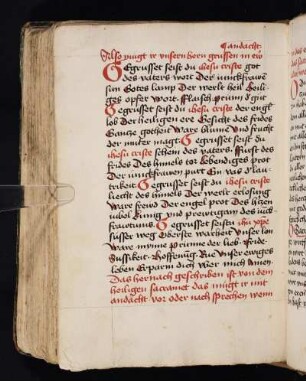 andacht
Also mugt ir vnsern hern grussen in ew
Gegrusset seist du ihesu criste got
des vaters wort Der iunckfrawē
sun Gotes lamp Der werlt heil heili
ges opfer wort flaisch
Gegrusset seist du ihesu criste der engel
lob Der heiligen ere Gesicht des frides
Gantze gotheit Ware blume vnd frucht
der muter magt Gegrusset seist du
ihesu criste schein des vaters furst des
frides Des himels tor lebendiges prot
Der iunckfrawen purt Ein vas d' lau
terkeit Gegrusset seist du ihesu criste
liecht des himels Der werlt erlosung
ware frewd Der engel prot Des hertzen
iubel kunig vnd prewtigam des iuck
frawtums Gegrusset seistu
susser weg Oberste warheit Vnser lon
Ware mynne prunne der lieb fride
Sussikeit Hoffenung Rue Vnser ewiges
leben Erparm dich vber mich Amen
Das hernach geschriben ist von dem
heiligen sacramēt das mugt ir mit
andacht vor oder nach sprechen wenn